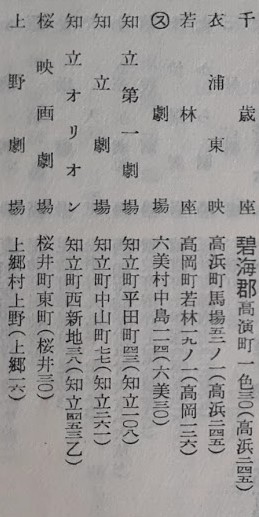 千歳座　碧海郡高浜町一色三〇(高浜二四五)
衣浦東映　高浜町馬場五ノ一(高浜二四五)
若林座　高岡町若林一九ノ一(高岡一三六)
㋜劇場　六美村中島一一四(六美三〇)
知立第一劇場　知立町平田町四三(知立一〇八)
知立劇場　知立町中山町七七(知立二六一)
知立オリオン　知立町西新地三八(知立四五三乙)
桜映画劇場　桜井町東町(桜井三〇)
上野劇場　上郷村上野(上郷一六)